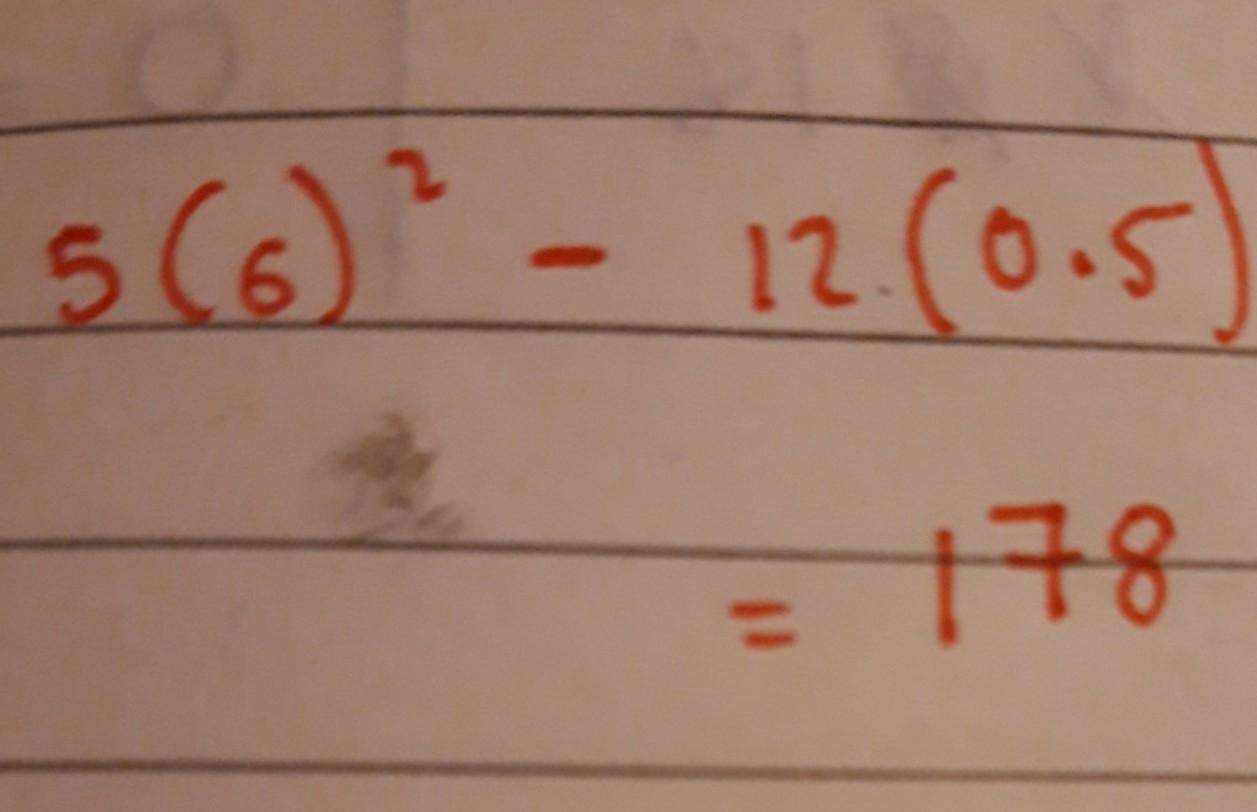 5(6)² - 12(0.5)
= 178